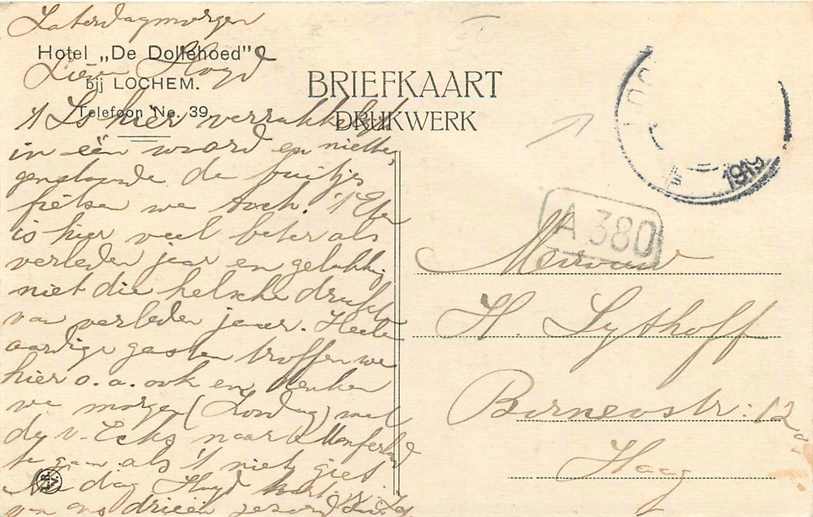 Zaterdagmorgen
Hotel „De Dollehoed"
Lieve
bij LOCHEM.
Telefoon No. 39
't Is hier verrukkelijk
in een woord en niette-
genstaande de buitjes
fietsen we toch. 't Eten
is hier veel beter als
verleden jaar en gelukkig
niet die helsche drukte
van verleden jaar. Heele
aardige gasten troffen we
hier o.a. ook en denken
we morgen (Zondag) met
de v. Ecks naar Montferland
te gaan als 't niet giet
dag
van ons drieën
BRIEFKAART
DRUKWERK
LOC
1919
A 380
Mevrouw
H. Sythoff
Borneostr: 12a
Haag